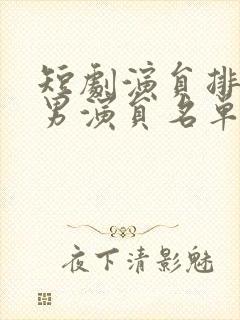 短劇演員排
男演員名單
夜下清影魅